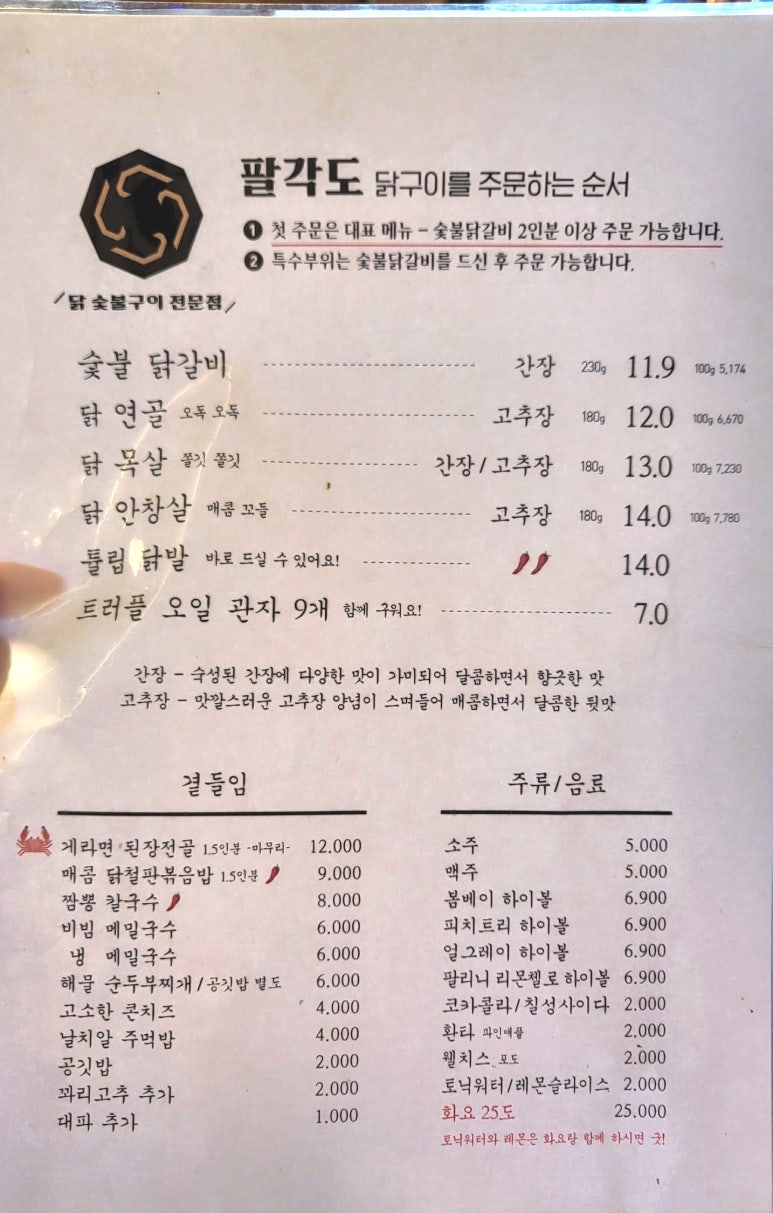 팔각도 닭구이를 주문하는 순서
❶ 첫 주문은 대표 메뉴 - 숯불닭갈비 2인분 이상 주문 가능합니다.
❷ 특수부위는 숯불닭갈비를 드신 후 주문 가능합니다.
닭 숯불구이 전문점
숯불 닭갈비 간장 230g 11.9 100g 5,174
닭 연골 오독 오독 고추장 180g 12.0 100g 6,670
닭 목살 쫄깃 쫄깃 간장/고추장 180g 13.0 100g 7,230
닭 안창살 매콤 꼬들 고추장 180g 14.0 100g 7,780
튤립 닭발 바로 드실 수 있어요! 14.0
트러플 오일 관자 9개 함께 구워요! 7.0
간장 - 숙성된 간장에 다양한 맛이 가미되어 달콤하면서 향긋한 맛
고추장 - 맛깔스러운 고추장 양념이 스며들어 매콤하면서 달콤한 뒷맛
곁들임
게라면 된장전골 1.5인분 -마무리- 12.000
매콤 닭철판볶음밥 1.5인분 9.000
짬뽕 칼국수 8.000
비빔 메밀국수 6.000
냉 메밀국수 6.000
해물 순두부찌개/공깃밥 별도 6.000
고소한 콘치즈 4.000
날치알 주먹밥 4.000
공깃밥 2.000
꽈리고추 추가 2.000
대파 추가 1.000
주류/음료
소주 5.000
맥주 5.000
봄베이 하이볼 6.900
피치트리 하이볼 6.900
얼그레이 하이볼 6.900
팔리니 리몬첼로 하이볼 6.900
코카콜라/칠성사이다 2.000
환타 파인애플 2.000
웰치스 포도 2.000
토닉워터/레몬슬라이스 2.000
화요 25도 25.000
토닉워터와 레몬은 화요랑 함께 하시면 굿!